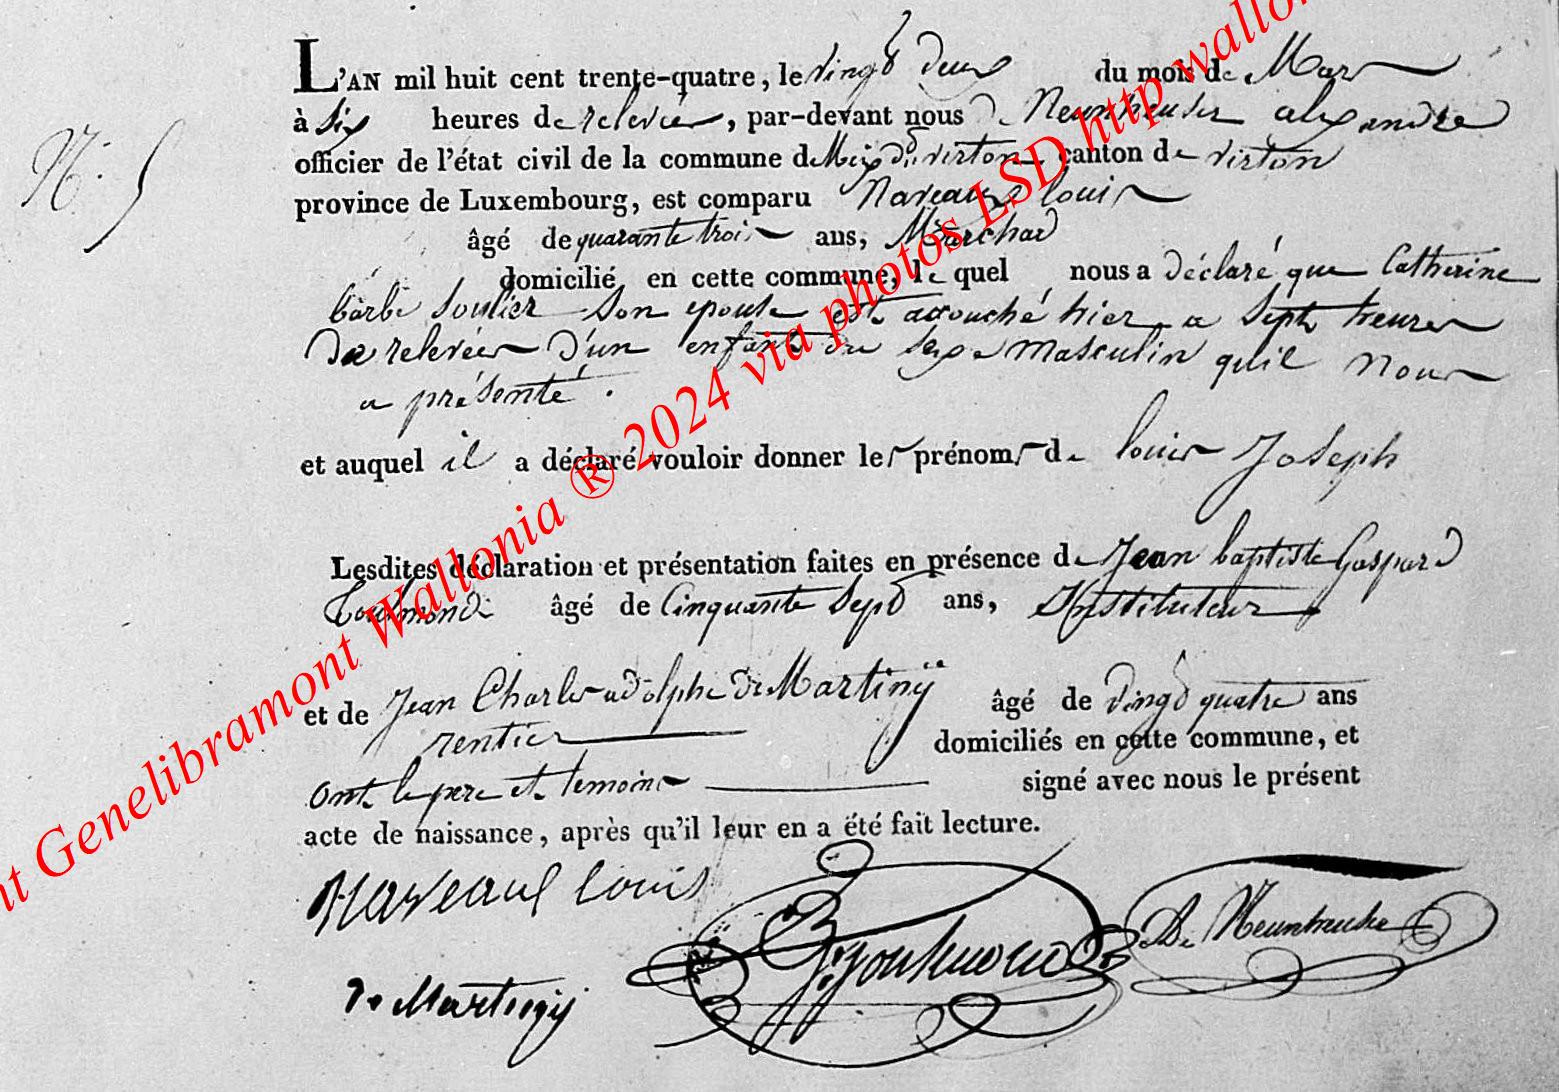 N.° 5
L'AN mil huit cent trente-quatre, le vingt deux du mois de Mars
à six heures de relevées, par-devant nous De Neunheuser alexandre
officier de l'état civil de la commune de Meix dt virton canton de virton
province de Luxembourg, est comparu Naveaux louis
âgé de quarante trois ans, Marchad
domicilié en cette commune, le quel nous a déclaré que Catherine
barbe soulier son epouse est accouché hier a sept heures
De relevées D'un enfant du sexe masculin qu'il nous
a présenté.
et auquel il a déclaré vouloir donner les prénoms de louis Joseph
Lesdites déclaration et présentation faites en présence de Jean baptiste Gaspard
âgé de Cinquante sept ans, Instituteur
et de Jean Charles adolphe De Martinÿ âgé de vingt quatre ans
rentier domiciliés en cette commune, et
ont le pere et temoins signé avec nous le présent
acte de naissance, après qu'il leur en a été fait lecture.
Naveaux Louis
De Neunheuser
de Martinÿ
nt Genelibramont Wallonia ® 2024 via photos LSD http wallon